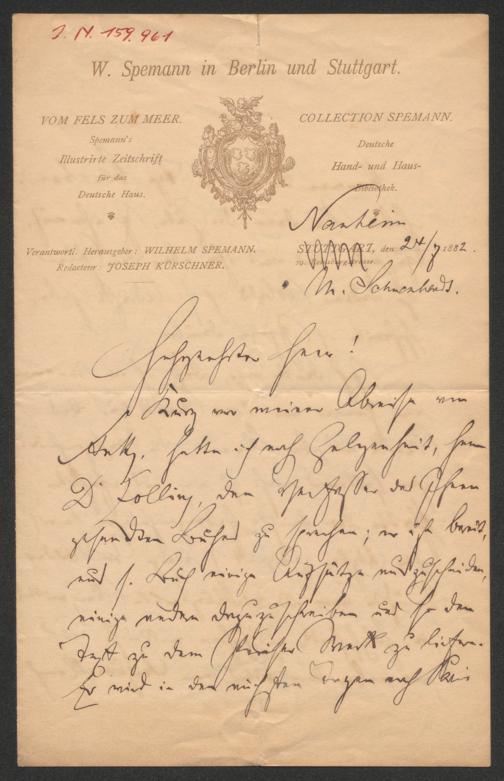 J. N. 159.961
W. Spemann in Berlin und Stuttgart.
VOM FELS ZUM MEER.
Spemann's
Illustrirte Zeitschrift
für das
Deutsche Haus.
Verantwortl. Herausgeber: WILHELM SPEMANN.
Redacteur: JOSEPH KÜRSCHNER.
COLLECTION SPEMANN.
Deutsche
Hand- und Haus-
Bibliothek.
Nauheim
STUTTGART, den 24/7 1882.
Hochgeehrter Herr!
Kurz vor meiner Abreise von
hatte ich noch Gelegenheit, Herrn
Dr Kolling, den Verfasser des Ihnen
gesandten Buches zu sprechen; er ist bereit,
aus s. Buch einige Aufsätze auszuscheiden,
einige andere dazuzuschreiben und so den
Text zu dem Pariser Werk zu liefern.
Er wird in den nächsten Tagen nach Paris